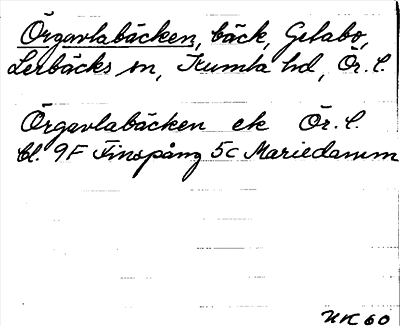 Örgavlabäcken, bäck, Gelabo,
Lerbäcks sn, Kumla hd, Ör. l.
Örgavlabäcken ek Ör. l.
bl. 9F Finspång 5c Mariedamm
NK 60